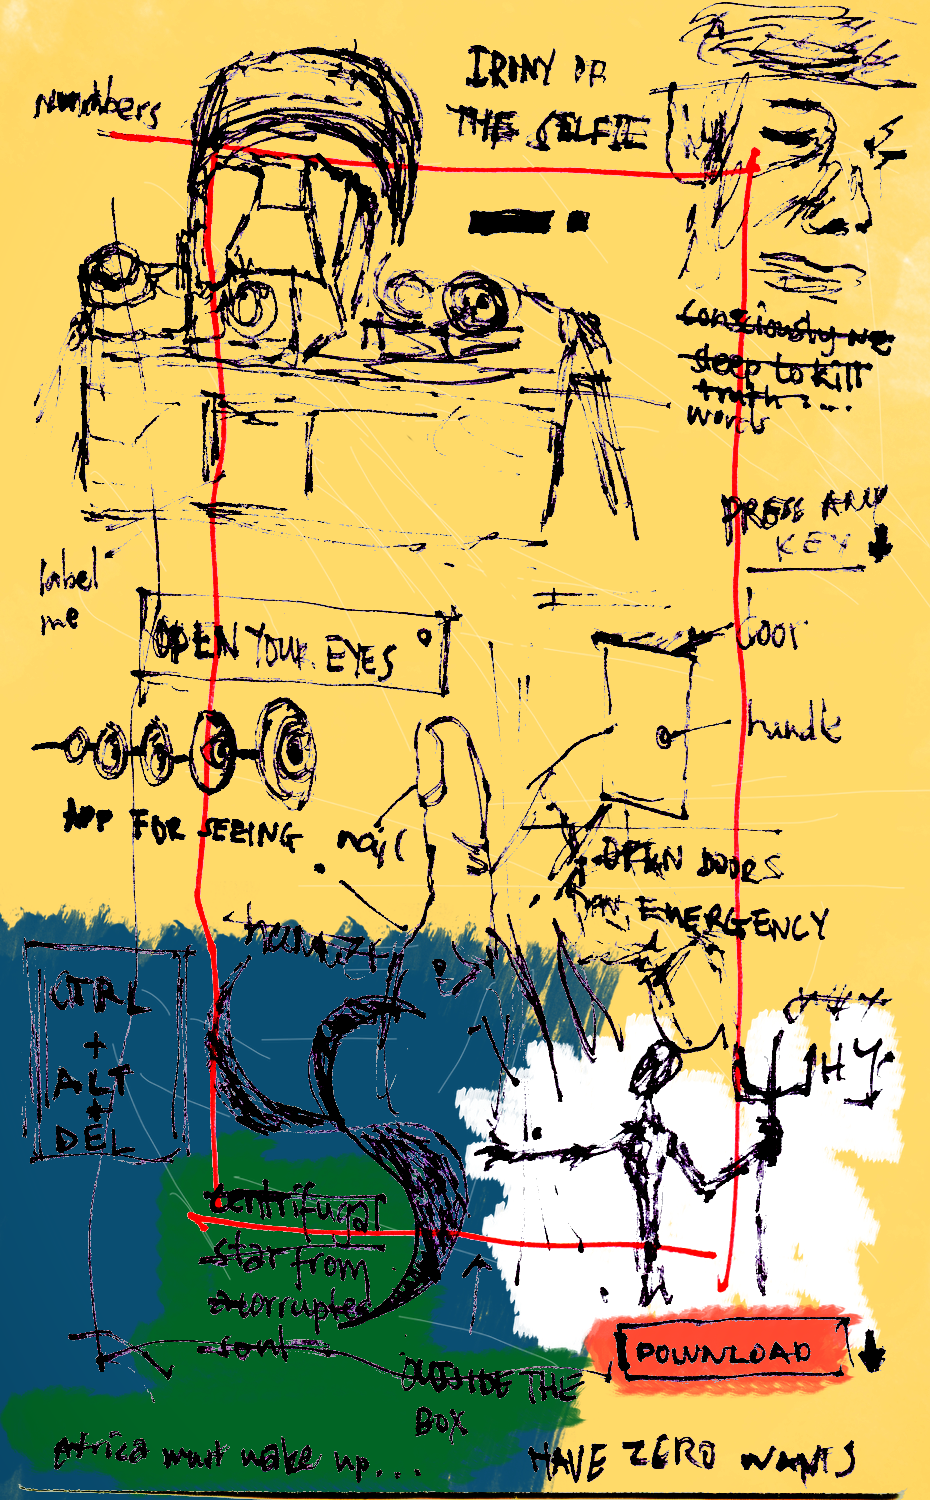 IRONY OR
THE SELFIE
numbers
consciously we
sleep to kill
truth....
words
PRESS ANY
KEY
label
me
OPEN YOUR EYES
door
handle
APP FOR SEEING
nail
OPEN DOORS
EMERGENCY
CTRL
+
ALT
+
DEL
centrifugal
star from
soul
DOWNLOAD
OUTSIDE THE
BOX
Africa must wake up...
HAVE ZERO WANTS